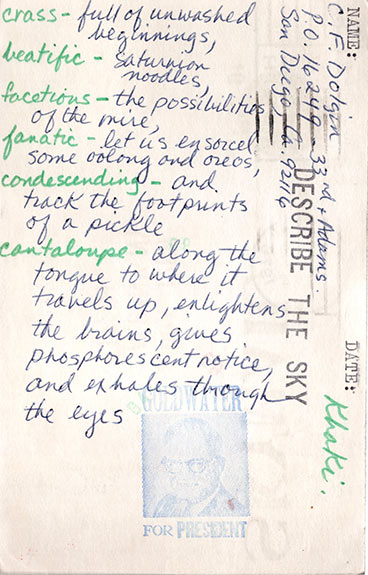 crass - full of unwashed
beginnings,
beatific - saturnian
noodles,
facetious - the possibilities
of the mire,
fanatic - let us ensorcel
some oolong and oreos,
condescending - and
track the footprints
of a pickle
cantaloupe - along the
tongue to where it
travels up, enlightens
the brains, gives
phosphorescent notice,
and exhales through
the eyes
NAME:
C. F. Dolgin
P.O. 16249 - 33rd & Adams
San Diego Ca. 92116
DESCRIBE THE SKY
DATE:
Khaki.
GOLDWATER
FOR PRESIDENT